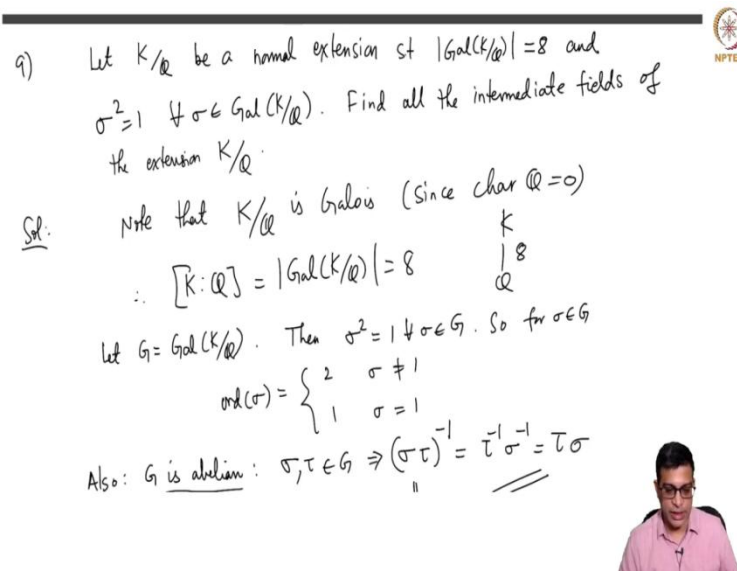 9) Let K/Q be a normal extension st |Gal(K/Q)| = 8 and
σ² = 1 ∀ σ ∈ Gal(K/Q). Find all the intermediate fields of
the extension K/Q.
Sol: Note that K/Q is Galois (since char Q = 0)
K
∴ [K:Q] = |Gal(K/Q)| = 8
| 8
Q
Let G = Gal(K/Q). Then σ² = 1 ∀ σ ∈ G. So for σ ∈ G
ord(σ) = { 2 σ ≠ 1
1 σ = 1
Also: G is abelian: σ, τ ∈ G ⇒ (στ)⁻¹ = τ⁻¹σ⁻¹ = τσ
"
NPTE